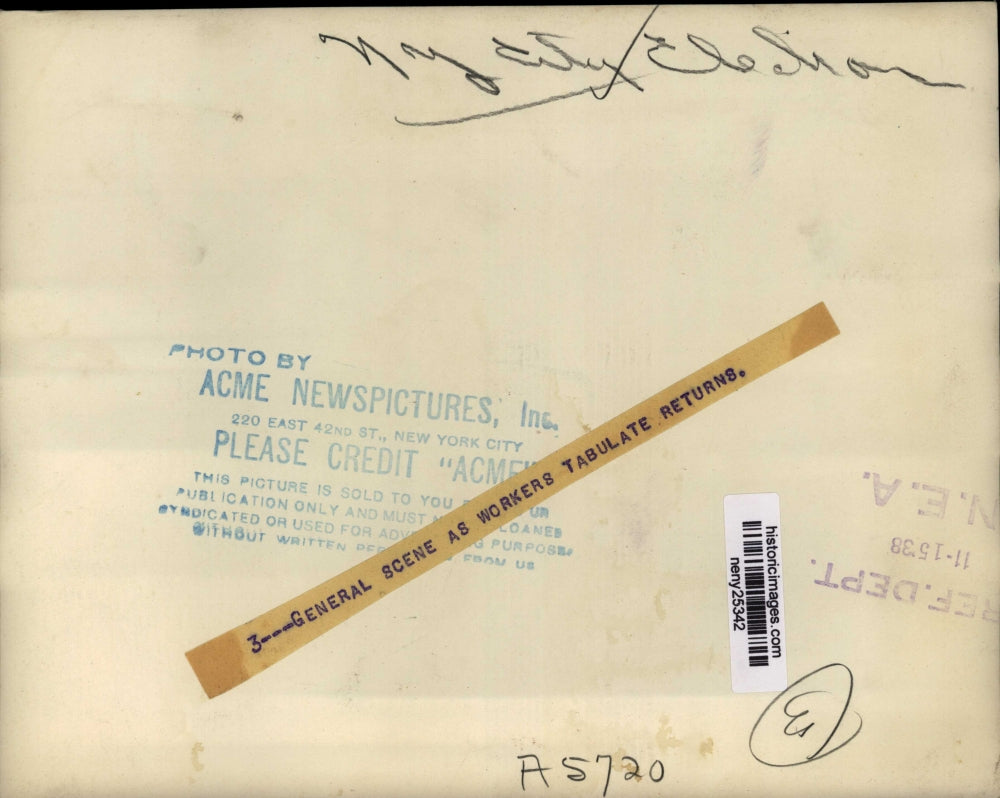 NY City Election
PHOTO BY
ACME NEWSPICTURES, Inc.
220 EAST 42ND ST., NEW YORK CITY
PLEASE CREDIT "ACME"
THIS PICTURE IS SOLD TO YOU UR
PUBLICATION ONLY AND MUST N LOANED
SYNDICATED OR USED FOR ADVE G PURPOSES
WITHOUT WRITTEN PER FROM US
3---GENERAL SCENE AS WORKERS TABULATE RETURNS.
N.E.A.
11-1538
REF. DEPT.
historicimages.com
neny25342
A5720